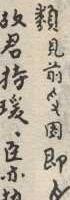 類見前文因即
故君持瑗臣亦